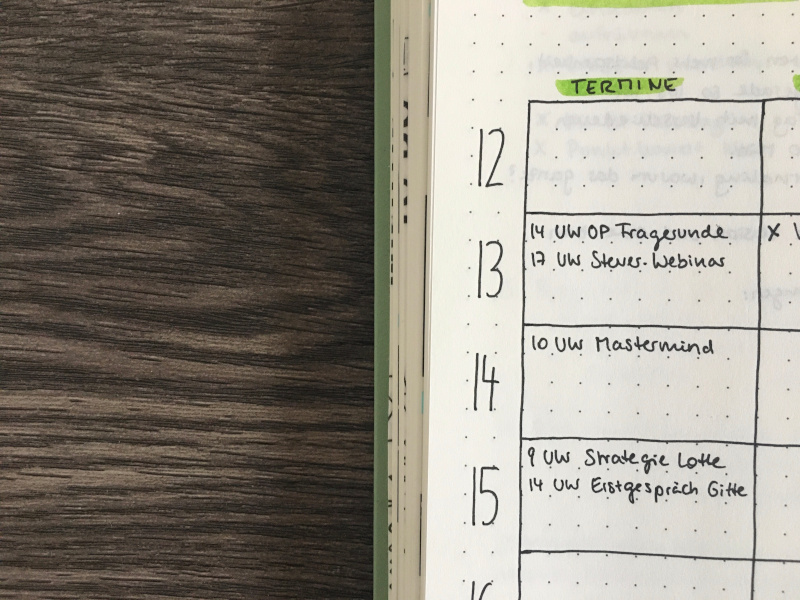 TERMINE
12
13
14 Uhr OP Fragerunde
17 Uhr Steuer-Webinar
X
14
10 Uhr Mastermind
15
9 Uhr Strategie Lotte
14 Uhr Erstgespräch Gitte